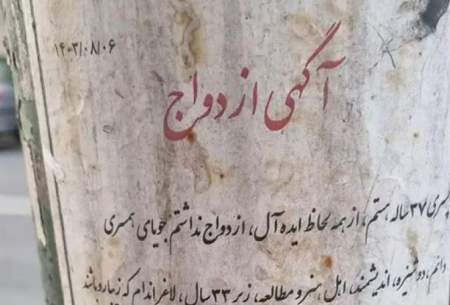 ۱۴۰۳/۰۸/۰۶
آگهی ازدواج
پسری ۳۷ ساله هستم، از همه لحاظ ایده آل، ازدواج نداشتم جویای همسری
دائم، دوشیزه، اندیشمند، اهل هنر و مطالعه، زیر ۳۳ سال، لاغر اندام که زیبارو باشد